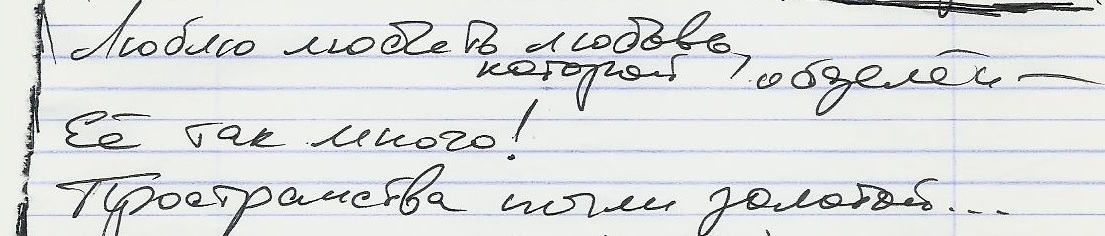 Люблю любить любовь, которой обделён —
Её так много!
Пространства золотой...